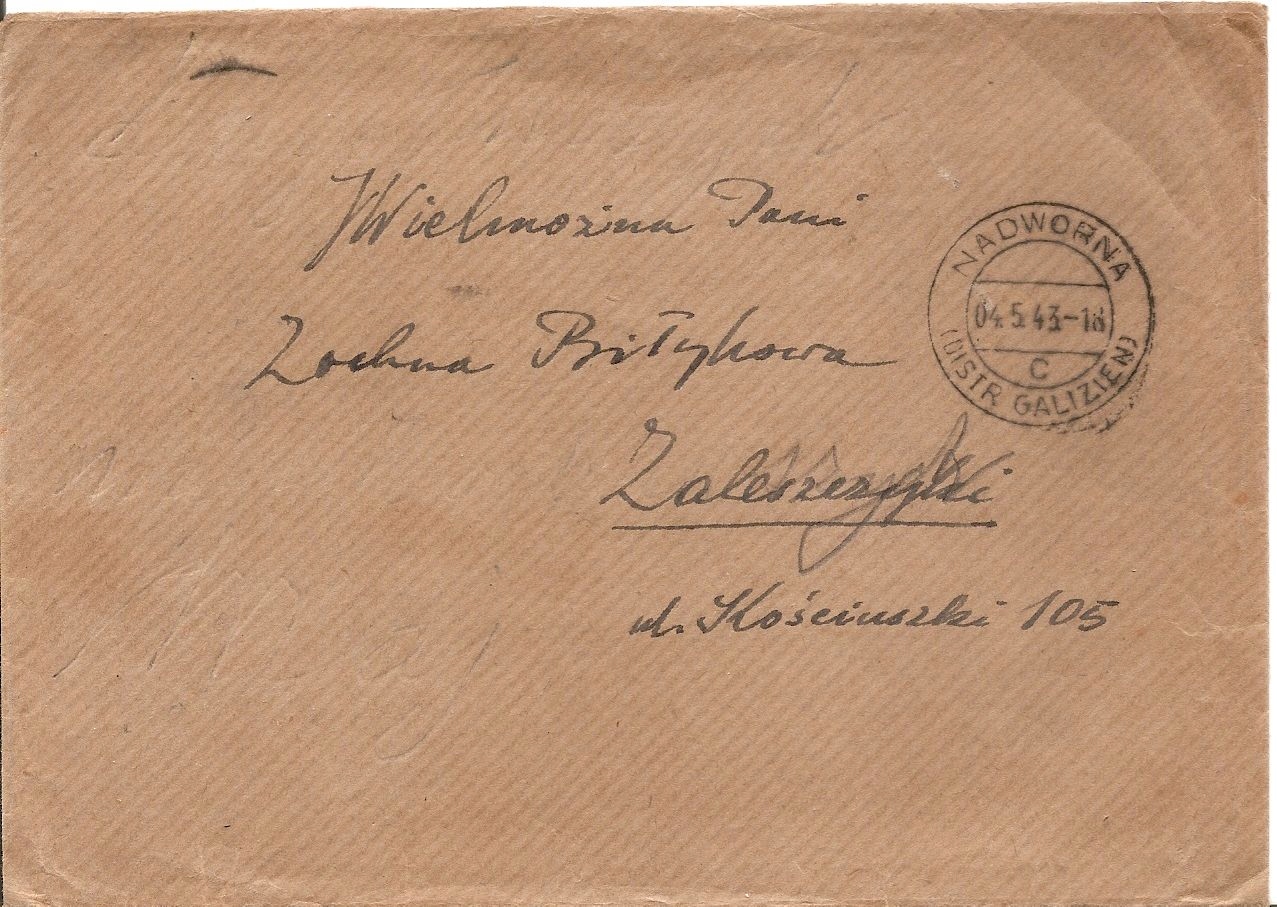 JWielmożna Pani
Zochna Biłykowa
Zaleszczyki
ul. Kościuszki 105
NADWORNA
04.5.43.-18
C
(DISTR GALIZIEN)